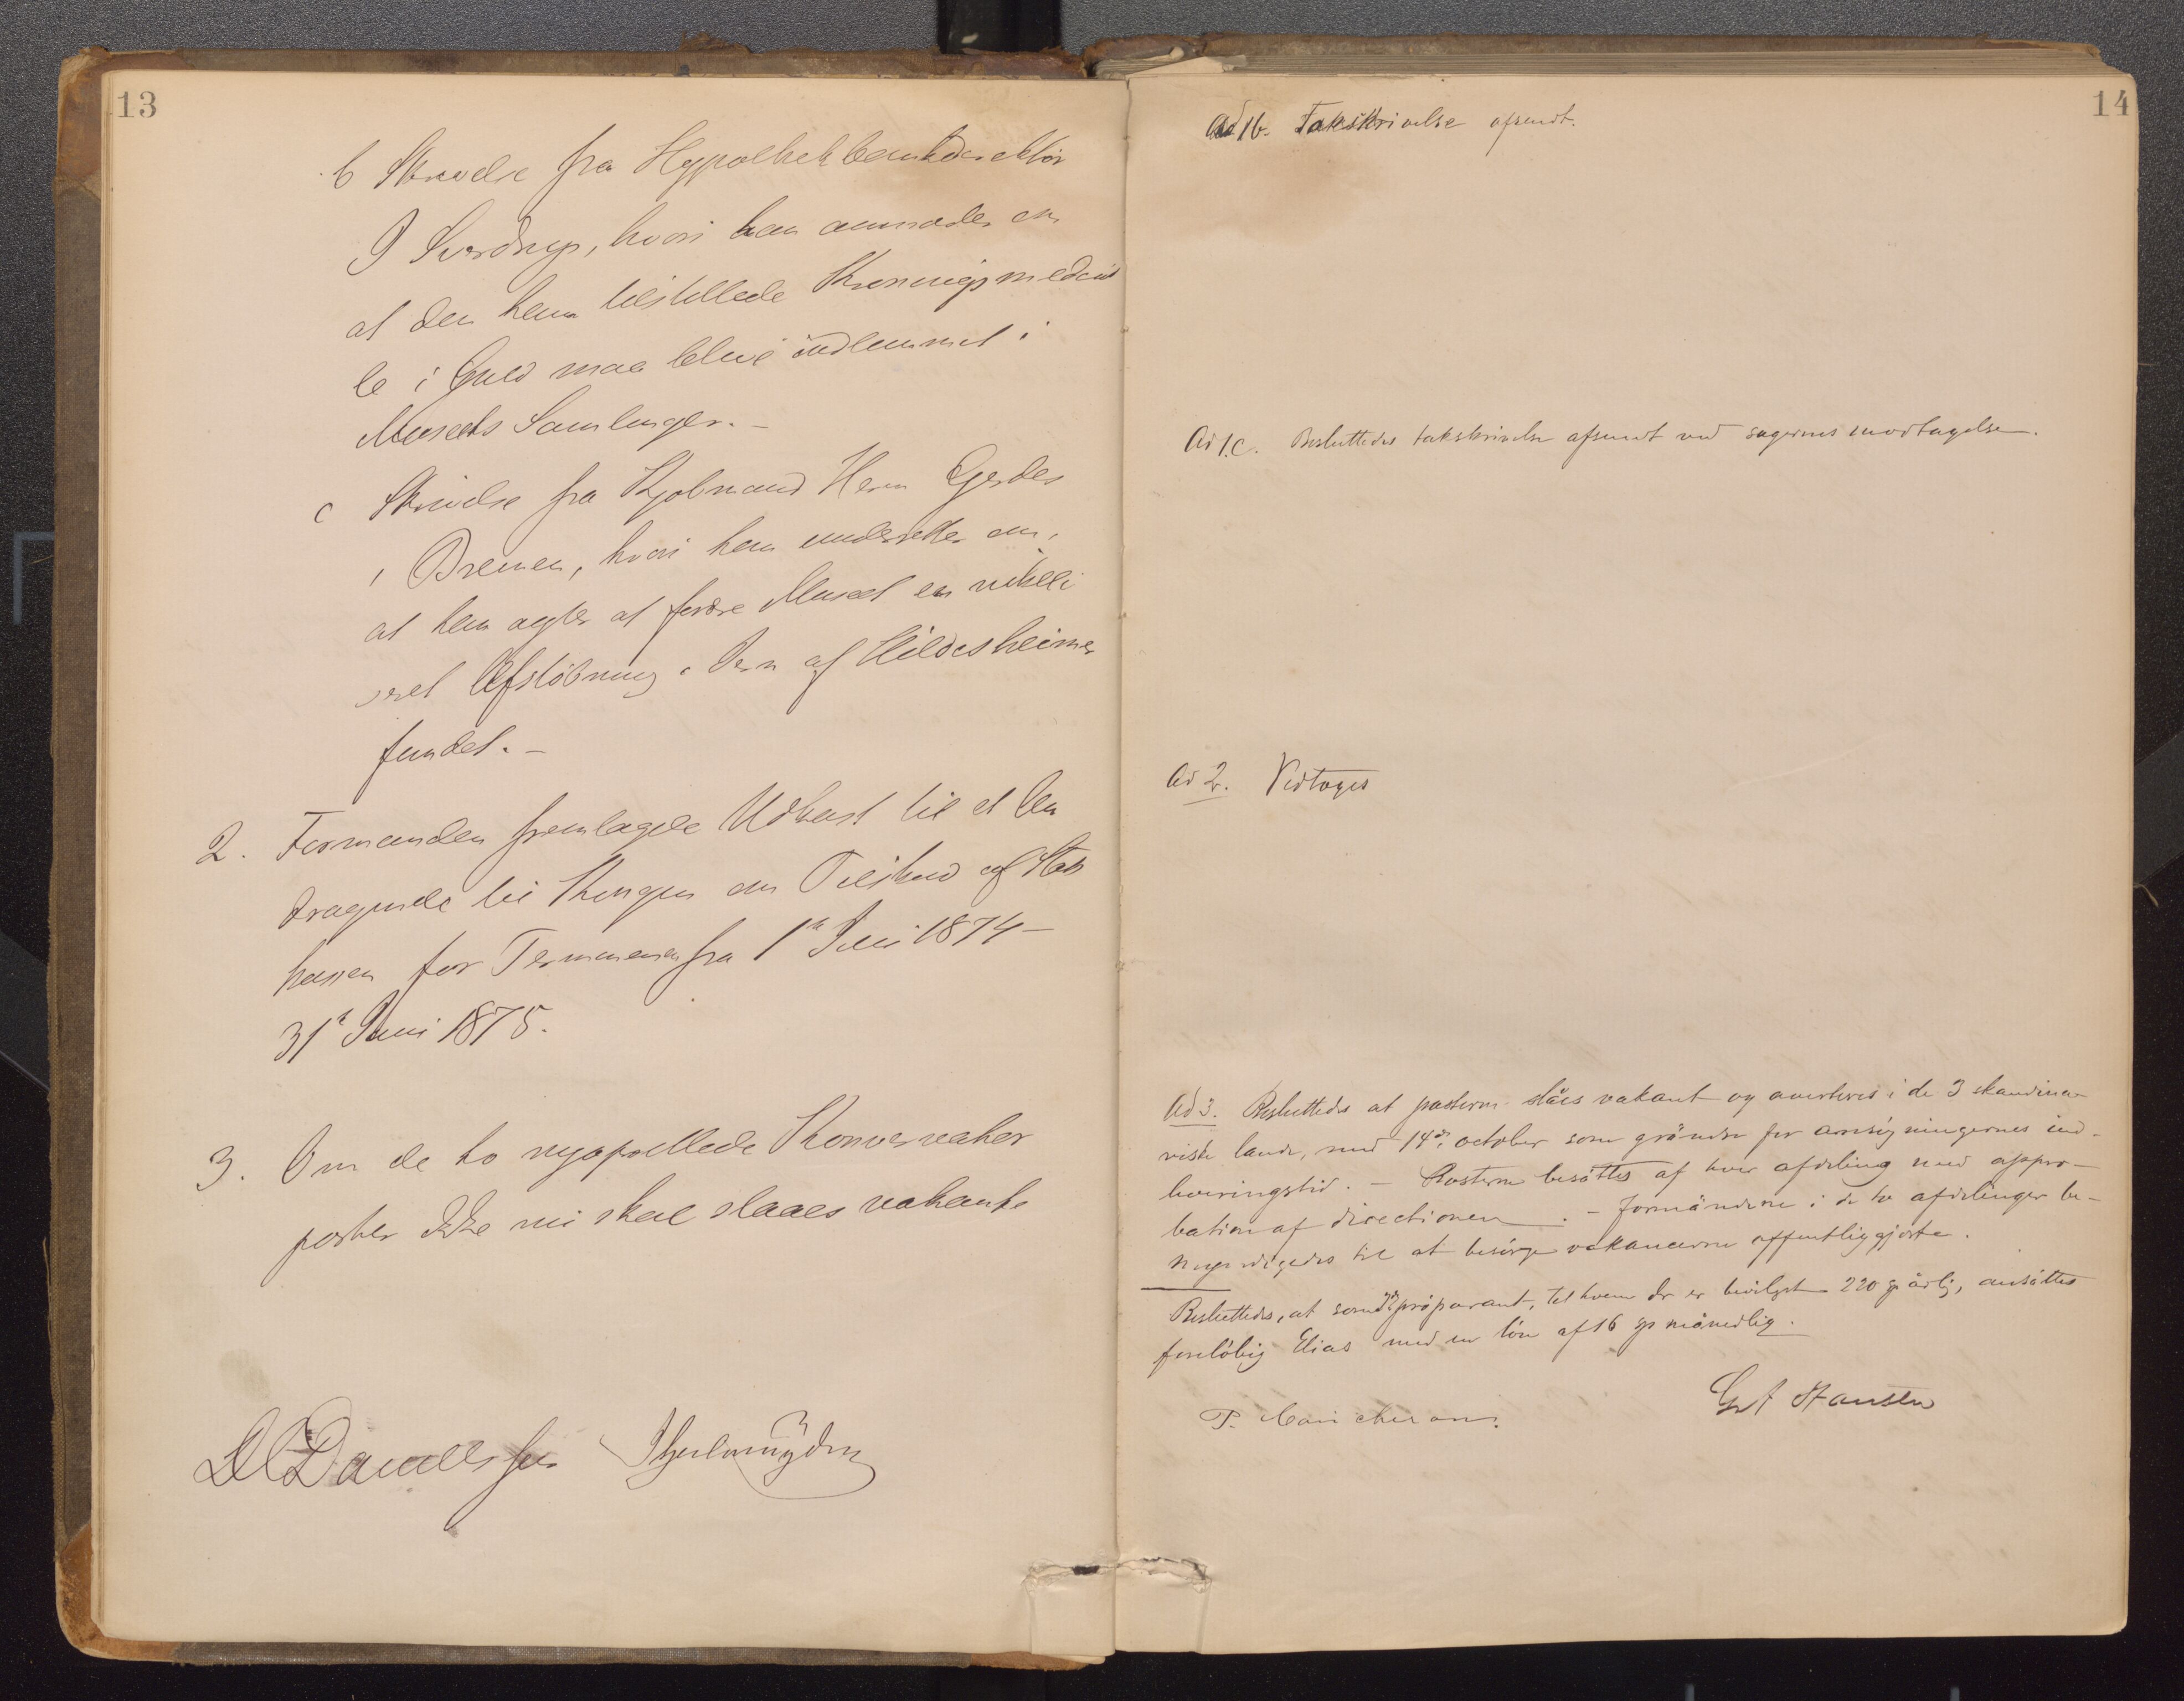 13
b Skrivelse fra Hypothekbankdirektör
J Sverdrup, hvori han anmoder om
at den ham tilstillede Kronings medail
le i Guld maa blive indlemmet i
Museets Samlinger. –
c Skrivelse fra Kjøbmand Herm Gerdes
i Bremen, hvori han underretter om,
at han agter at forære Museet en nikelli
seret Afstöbning i Jern af Hildesheimer
fundet. –
2. Formanden fremlagde Udkast til et An
dragende til Kongen om Tilskud af Stats
kassen for Terminen fra 1ste Juli 1874 –
31te Juni 1875.
3. Om de to nyoprettede Konservator
poster ikke nu skal slaaes vakante
DCDanielssen JGerhvmÿden
14
Ad 1b. Takskrivelse afsendt.
Ad 1.c. Besluttedes takskrivelse afsendt ved sagernes modtagelse.
Ad 2. Vedtoges
Ad 3. Besluttedes at posterne slåes vakant og averteres i de 3 skandina-
viske lande, med 14de october som grändse for ansögningernes ind-
leveringstid. – Posterne besättes af hver afdeling med appro-
bation af directionen. – Formändene i de to afdelinger be-
myndigedes til at besörge vakancerne offentliggjorte.
Besluttedes, at som präparant, til hvem der er bevilget 220 sp årlig, ansättes
foreløbig Elias med en lön af 16 sp månedlig.
G A Hansen